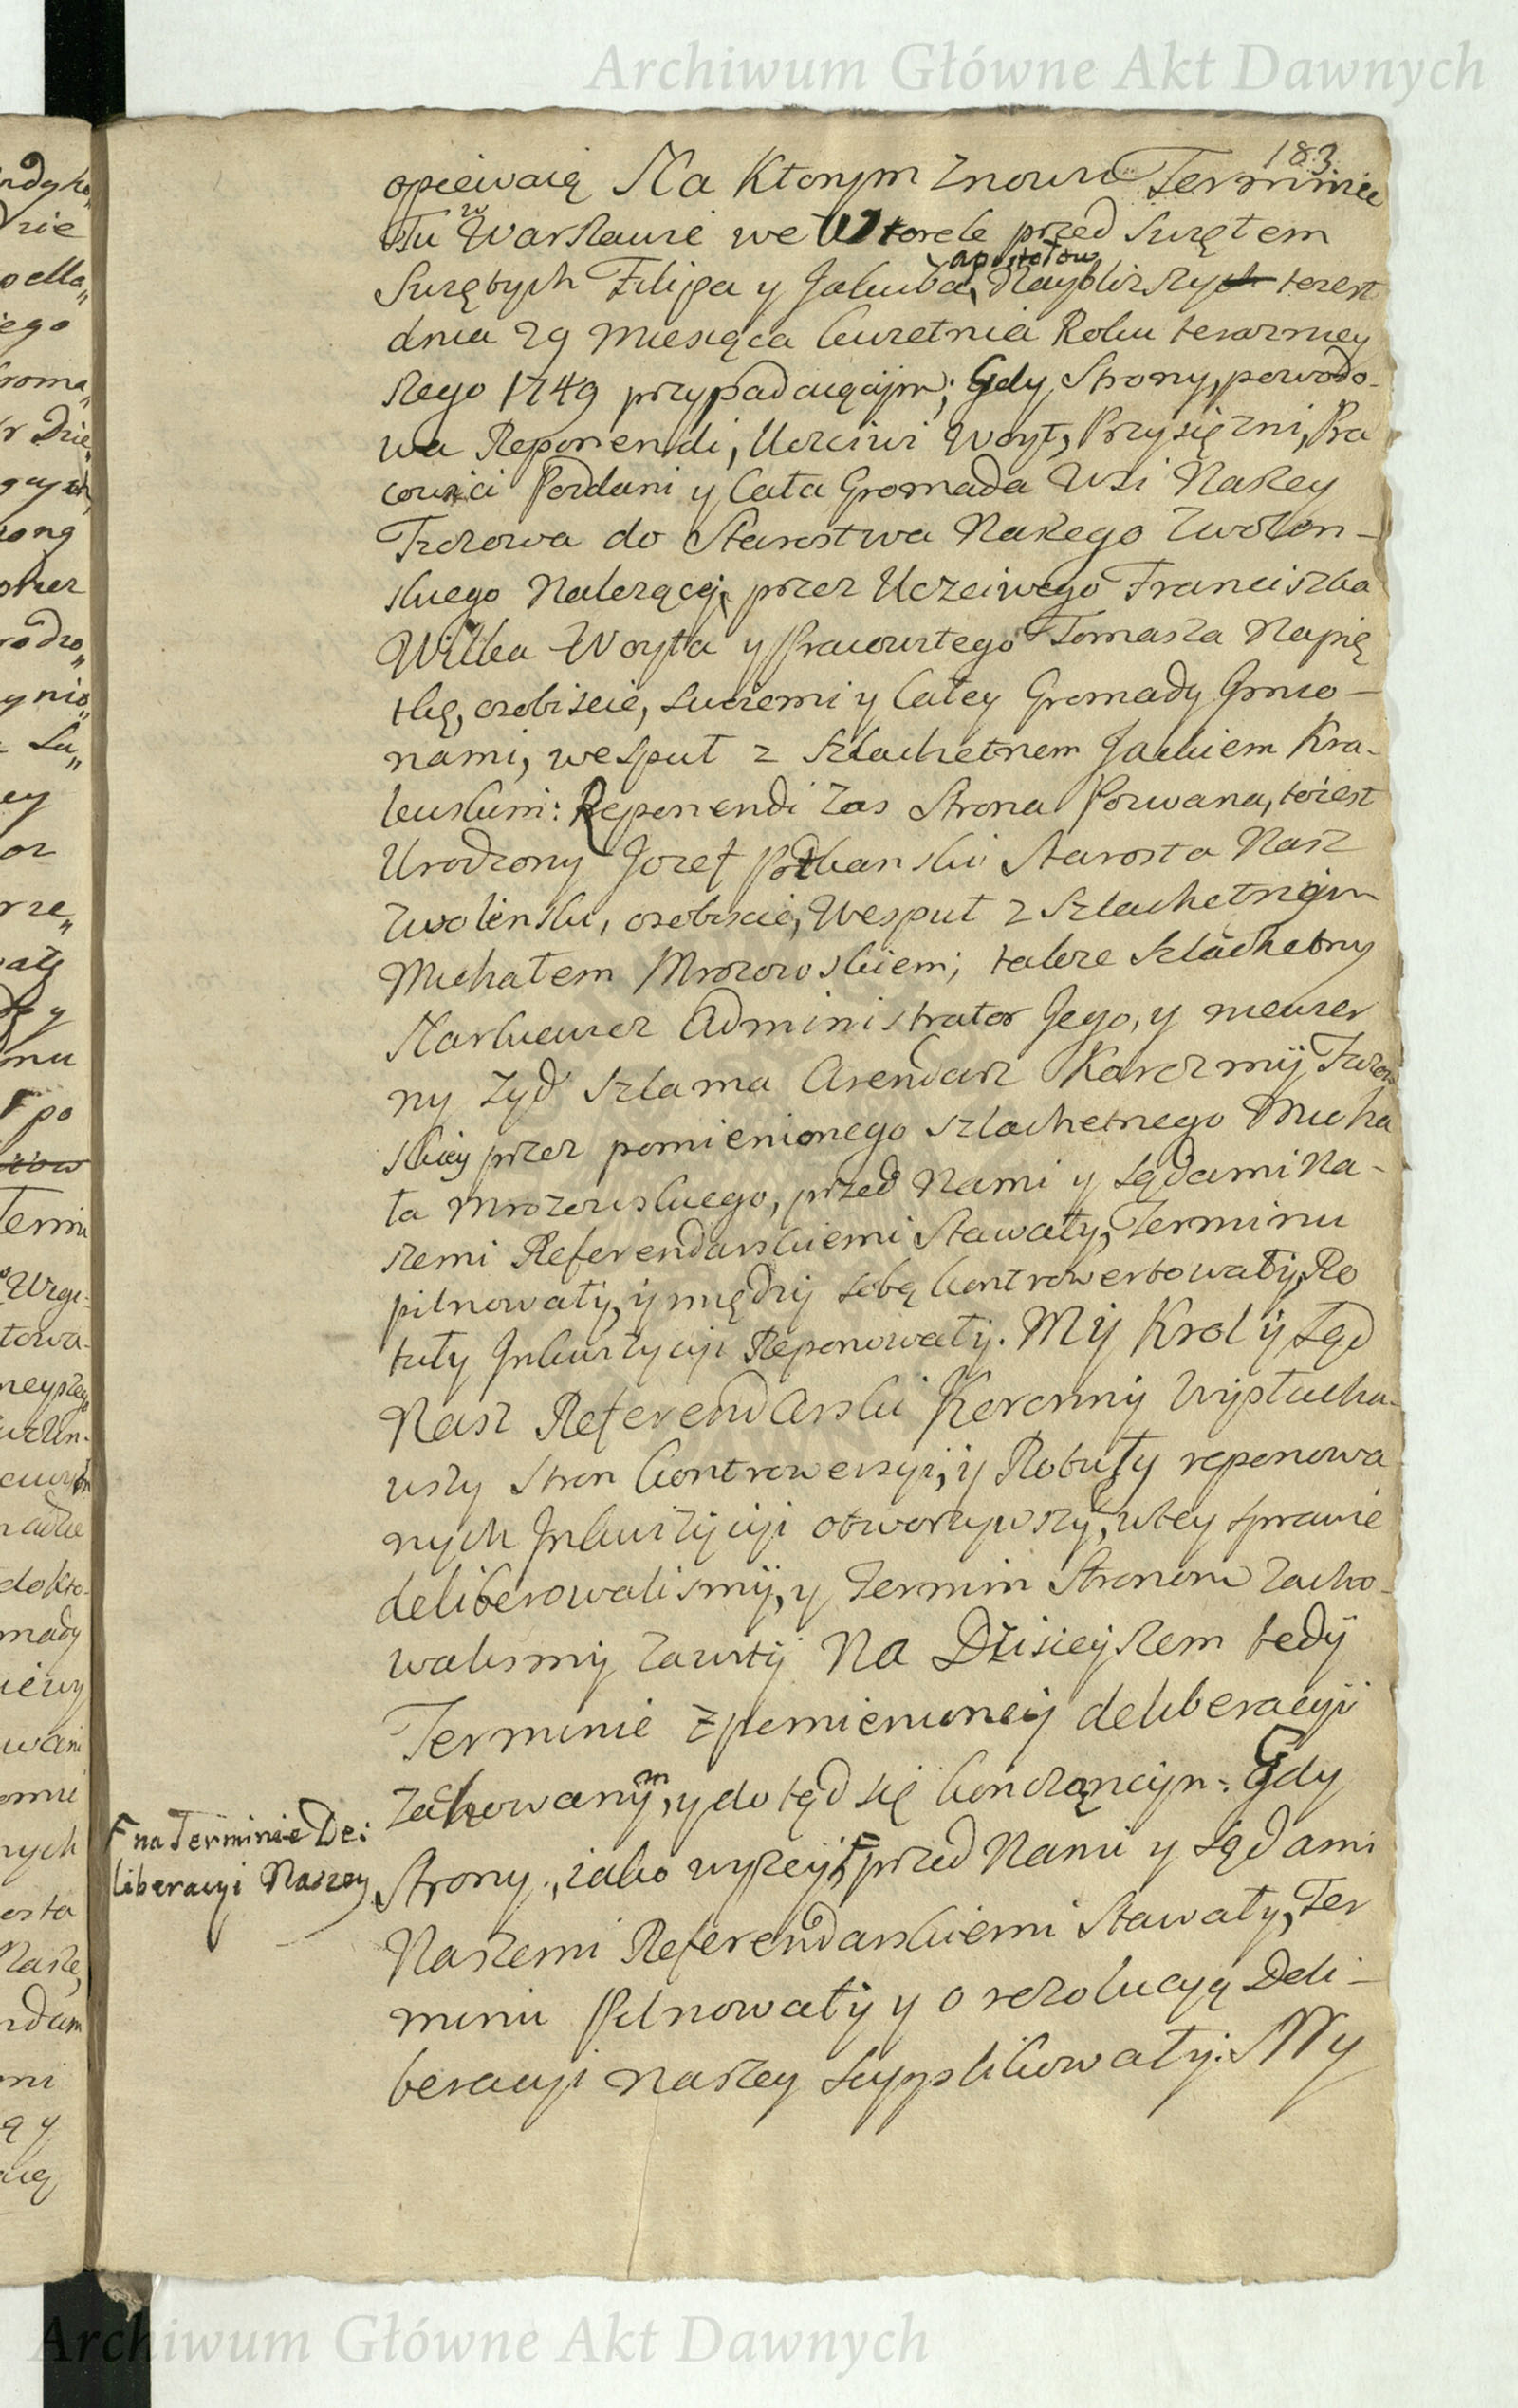 Archiwum Główne Akt Dawnych
183.
opiewaią Na Ktorym znowu Terminie
Tu w Warszawie we Wtorek przed Swiętem
Swiętych Filipa y Jakuba, apostołow Naybliższy toiest
dnia 29 Miesiąca Kwietnia Roku terazniey
szego 1749 przypadaiącym; Gdy Strony, powodo-
wa Reponendi, Uczciwi Woyt, Przysięzni, Pra
cowici Poddani y Cała Gromada Wsi Naszey
Tczowa do Starostwa Naszego Zwolen-
skiego Nalezącej, przez Uczciwego Franciszka
Wilka Woyta y Pracowitego Tomasza Napię
tkę, osobiscie, swoiemi y Całey Gromady Jmio-
nami, wespuł z Szlachetnem Jackiem Kra-
kuskim: Reponendi zas Strona Pozwana, toiest
Urodzony Jozef Podkanski Starosta Nasz
Zwolenski, osobiscie, Wespuł z Szlachetnym
Michałem Mrozowskiem; takze Szlachetny
Markiewicz Administrator Jego, y niewier
ny Zyd Szlama Arendarz Karczmy Tczow
skiey przez pomienionego Szlachetnego Micha
ła Mrozowskiego, przed Nami y Sądami Na-
szemi Referendarskiemi Stawały, Terminu
pilnowały, y między sobą kontrowertowały, Ro
tuły Inkwizycyi Reponowały. My Krol y Sąd
Nasz Referendarski Koronny Wysłucha-
wszy Stron kontrowersyi, y Rotuły reponowa
nych Inkwizycyi otworzywszy, wtey sprawie
deliberowalismy, y Termin Stronom zacho-
walismy zawity Na Dzisieyszem tedy
Terminie zpomienioney deliberacyi
Zachowanym, y do tąd się kończącym: Gdy
Strony, iako wyzey, F przed Nami y Sądami
F na Terminie De:
liberacyi Naszey
Naszemi Referendarskiemi Stawały, Ter
minu Pilnowały y o rezolucyą Deli-
beracyi naszey supplikowały: My
Archiwum Główne Akt Dawnych